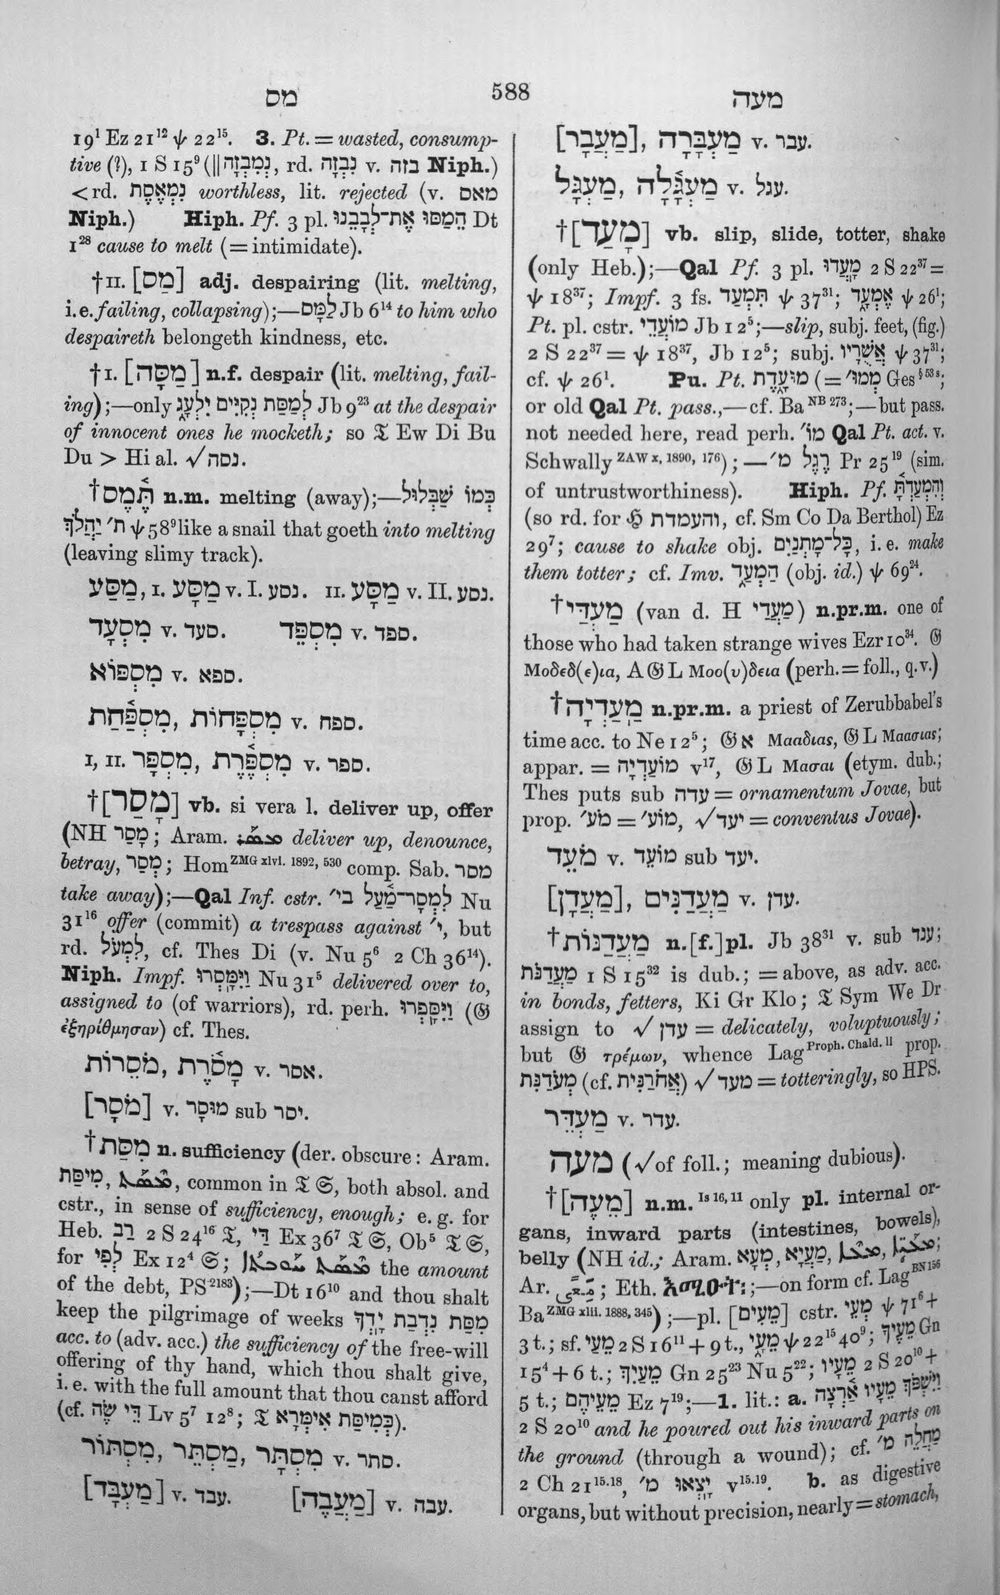 מס
588
מעה
19¹ Ez 21¹² ψ 22¹⁵. 3. Pt. = wasted, consump-
tive (?), 1 S 15⁹ (‖ נְמִבְזָה, rd. נִבְזָה v. בזה Niph.)
< rd. נִמְאֶסֶת worthless, lit. rejected (v. מאס
Niph.) Hiph. Pf. 3 pl. הֵמַסּוּ אֶת־לְבָבֵנוּ Dt
1²⁸ cause to melt (= intimidate).
†II. [מָס] adj. despairing (lit. melting,
i.e. failing, collapsing);—לַמָּס Jb 6¹⁴ to him who
despaireth belongeth kindness, etc.
†I. [מַסָּה] n.f. despair (lit. melting, fail-
ing);—only לְמַסַּת נְקִיִּים יִלְעָג Jb 9²³ at the despair
of innocent ones he mocketh; so 𝔗 Ew Di Bu
Du > Hi al. √נסה.
†תֶּ֫מֶס n.m. melting (away);—כְּמוֹ שַׁבְּלוּל
ת׳ יַהֲלֹךְ ψ 58⁹ like a snail that goeth into melting
(leaving slimy track).
מַסַּע, I. מַסָּע v. I. נסע. II. מַסָּע v. II. נסע.
מִסְעָד v. סעד. מִסְפֵּד v. ספד.
מִסְפּוֹא v. ספא.
מִסְפַּ֫חַת, מִסְפָּחוֹת v. ספח.
I, II. מִסְפָּר, מִסְפֶּ֫רֶת v. ספר.
†[מָסַר] vb. si vera l. deliver up, offer
(NH מָסַר; Aram. ܡܣܰܪ deliver up, denounce,
betray, מְסַר; Hom ZMG xlvi. 1892, 530 comp. Sab. מסר
take away);—Qal Inf. cstr. לִמְסָר־מַ֫עַל בי״ Nu
31¹⁶ offer (commit) a trespass against י״, but
rd. לִמְעֹל, cf. Thes Di (v. Nu 5⁶ 2 Ch 36¹⁴).
Niph. Impf. וַיִּמָּסְרוּ Nu 31⁵ delivered over to,
assigned to (of warriors), rd. perh. וַיִּסָּפְרוּ (𝔊
ἐξηρίθμησαν) cf. Thes.
מָסֹ֫רֶת, מֹסֵרוֹת v. אסר.
[מֹסָר] v. מוּסָר sub יסר.
†מִסַּת n. sufficiency (der. obscure: Aram.
מִיסַּת, ܡܶܣܬܳܐ, common in 𝔗 𝔖, both absol. and
cstr., in sense of sufficiency, enough; e. g. for
Heb. רַב 2 S 24¹⁶ 𝔗, דַּי Ex 36⁷ 𝔗 𝔖, Ob⁵ 𝔗 𝔖,
for לְפִי Ex 12⁴ 𝔖; the amount
of the debt, PS²¹⁸³);—Dt 16¹⁰ and thou shalt
keep the pilgrimage of weeks מִסַּת נִדְבַת יָדְךָ
acc. to (adv. acc.) the sufficiency of the free-will
offering of thy hand, which thou shalt give,
i. e. with the full amount that thou canst afford
(cf. דֵּי שֶׂה Lv 5⁷ 12⁸; 𝔗 כְּמִיסַּת אִימְּרָא).
מִסְתָּר, מַסְתֵּר, מִסְתּוֹר v. סתר.
[מַעְבָּד] v. עבד. [מַעֲבֶה] v. עבה.
[מַעֲבָר], מַעְבָּרָה v. עבר.
מַעְגָּל, מַעְגָּלָה v. עגל.
†[מָעַד] vb. slip, slide, totter, shake
(only Heb.);—Qal Pf. 3 pl. מָעֲדוּ 2 S 22³⁷ =
ψ 18³⁷; Impf. 3 fs. תִּמְעַד ψ 37³¹; אֶמְעָד ψ 26¹;
Pt. pl. cstr. מוֹעֲדֵי Jb 12⁵;—slip, subj. feet, (fig.)
2 S 22³⁷ = ψ 18³⁷, Jb 12⁵; subj. אֲשֻׁרָיו ψ 37³¹;
cf. ψ 26¹. Pu. Pt. מוּעָדֶת (= מְמוּ׳ Ges § 53 s;
or old Qal Pt. pass.,—cf. Ba NB 273;—but pass.
not needed here, read perh. מוֹ׳ Qal Pt. act. v.
Schwally ZAW x, 1890, 176);—רֶגֶל מ׳ Pr 25¹⁹ (sim.
of untrustworthiness). Hiph. Pf. וְהִמְעַדְתָּ
(so rd. for ℌ והעמדת, cf. Sm Co Da Berthol) Ez
29⁷; cause to shake obj. כָּל־מָתְנַיִם, i. e. make
them totter; cf. Imv. הַמְעַד (obj. id.) ψ 69²⁴.
†מַעֲדַי (van d. H מַעֲדַי) n.pr.m. one of
those who had taken strange wives Ezr 10³⁴. 𝔊
Μοδεδ(ε)ια, A 𝔊 L Μοο(υ)δεια (perh. = foll., q.v.)
†מַעַדְיָה n.pr.m. a priest of Zerubbabel's
time acc. to Ne 12⁵; 𝔊 א Μααδιας, 𝔊 L Μαασιας;
appar. = מוֹעַדְיָה v¹⁷, 𝔊 L Μασαι (etym. dub.;
Thes puts sub עדה = ornamentum Jovae, but
prop. מע׳ = מוֹע׳, √יעד = conventus Jovae).
מֹעֵד v. מוֹעֵד sub יעד.
[מַעֲדָן], מַעֲדַנִּים v. עדן.
†מַעֲדַנּוֹת n.[f.]pl. Jb 38³¹ v. sub ענד;
מַעֲדַנֹּת 1 S 15³² is dub.; = above, as adv. acc.
in bonds, fetters, Ki Gr Klo; 𝔗 Sym We Dr
assign to √עדן = delicately, voluptuously;
but 𝔊 τρέμων, whence Lag Proph. Chald. li prop.
מְעֹדַנִּת (cf. אֲחֹרַנִּית) √מעד = totteringly, so HPS.
מַעְדֵּר v. עדר.
מעה (√of foll.; meaning dubious).
†[מֵעֶה] n.m. Is 16, 11 only pl. internal or-
gans, inward parts (intestines, bowels),
belly (NH id.; Aram.
Ar. ; Eth. አማዑት፡;—on form cf. Lag BN 156
Ba ZMG xlii. 1888, 345);—pl. [מֵעִים] cstr. מְעֵי ψ 71⁶ +
3 t.; sf. מֵעַי 2 S 16¹¹ + 9 t., מֵעָי ψ 22¹⁵ 40⁹; מֵעֶיךָ Gn
15⁴ + 6 t.; מֵעַיִךְ Gn 25²³ Nu 5²²; מֵעָיו 2 S 20¹⁰ +
5 t.; מְעֵיהֶם Ez 7¹⁹;—1. lit.: a. וַיִּשְׁפֹּךְ מֵעָיו אַרְצָה
2 S 20¹⁰ and he poured out his inward parts on
the ground (through a wound); cf. מַחֲלֵה מ׳
2 Ch 21¹⁵·¹⁸, יָצְאוּ מ׳ v¹⁵·¹⁹. b. as digestive
organs, but without precision, nearly = stomach,